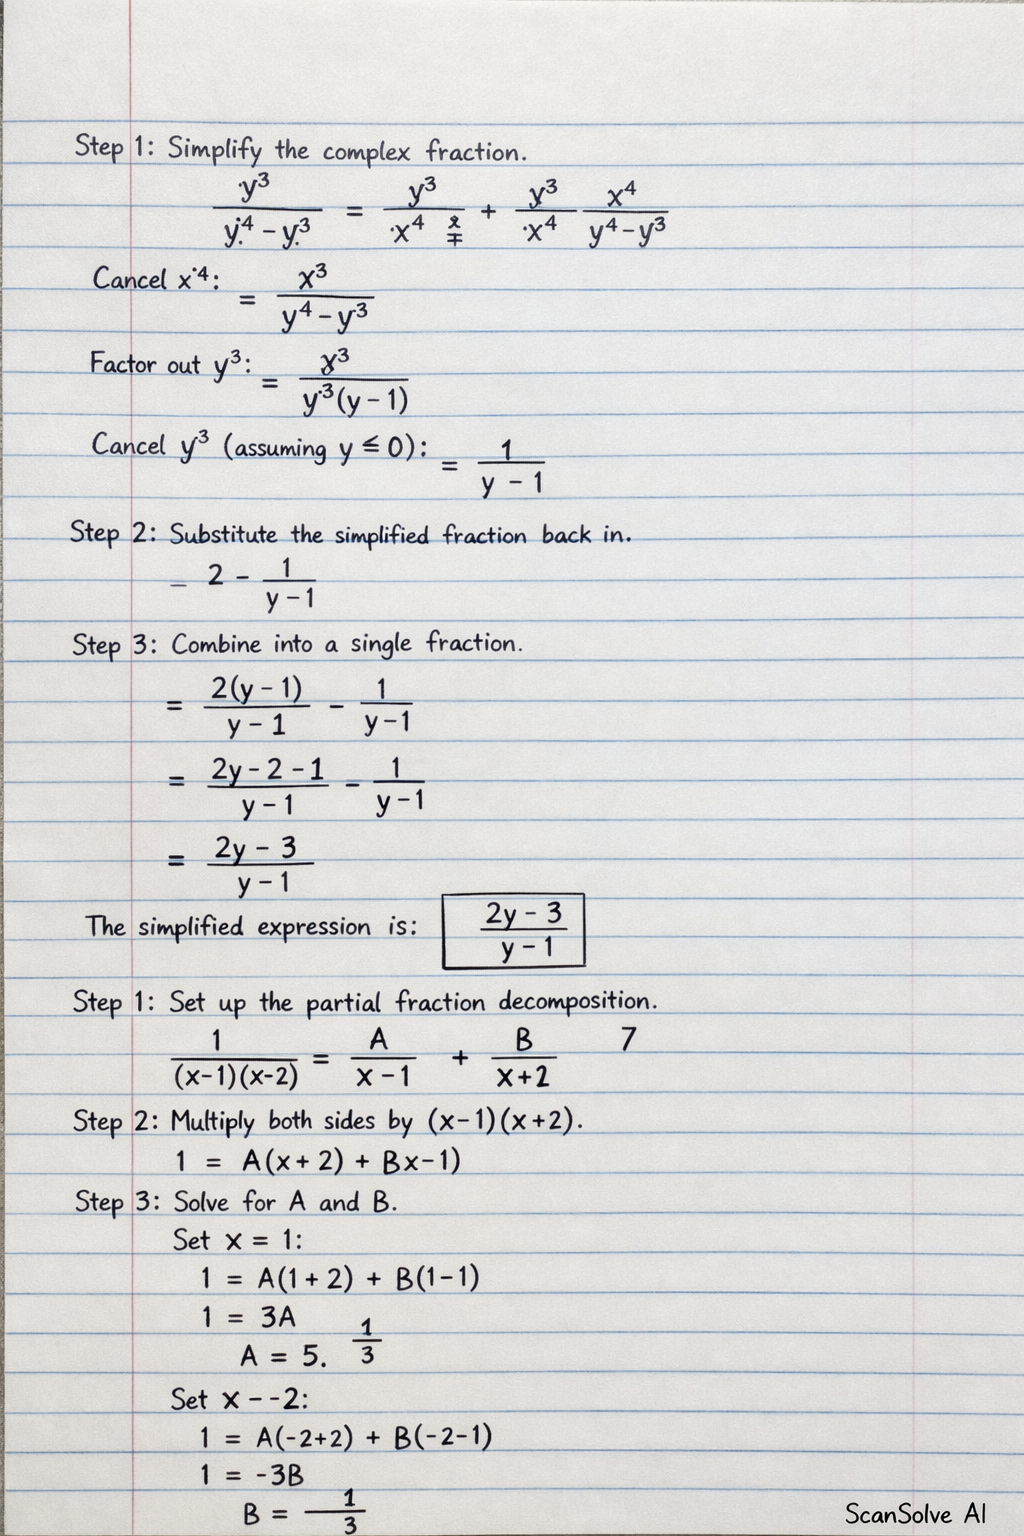 Step 1: Simplify the complex fraction.
y³/(y⁴ - y³) = y³/x⁴ + y³/x⁴ x⁴/(y⁴-y³)
Cancel x⁴: = x³/(y⁴ - y³)
Factor out y³: = y³/(y³(y-1))
Cancel y³ (assuming y ≤ 0): = 1/(y - 1)
Step 2: Substitute the simplified fraction back in.
– 2 - 1/(y-1)
Step 3: Combine into a single fraction.
= 2(y-1)/(y-1) - 1/(y-1)
= (2y-2-1)/(y-1) - 1/(y-1)
= (2y-3)/(y-1)
The simplified expression is: (2y-3)/(y-1)
Step 1: Set up the partial fraction decomposition.
1/((x-1)(x-2)) = A/(x-1) + B/(x+2) 7
Step 2: Multiply both sides by (x-1)(x+2).
1 = A(x+2) + Bx-1)
Step 3: Solve for A and B.
Set x = 1:
1 = A(1+2) + B(1-1)
1 = 3A
A = 5. 1/3
Set x - -2:
1 = A(-2+2) + B(-2-1)
1 = -3B
B = — 1/3
ScanSolve AI